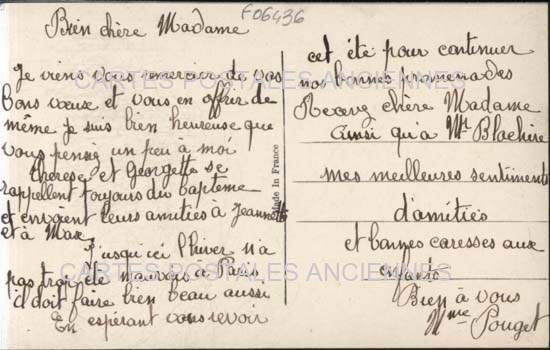 F06436
Bien chère Madame
Je viens vous remercier de vos
bons vœux et vous en offrir de
même je suis bien heureuse que
vous pensiez un peu à moi
Thérèse et Georgette se
rappellent toujours du baptème
et envoient leurs amitiés à Jeannette
et à Max.
Jusqu'ici l'hiver n'a
pas trop été mauvais à Paris
il doit faire bien beau aussi
En espérant vous revoir
Made in France
cet été pour continuer
nos bonnes promenades
Recevez chère Madame
ainsi qu'à Mr Blachère
mes meilleures sentiments
d'amitiés
et bonnes caresses aux
enfants
Bien à vous
Mme Pouget
CARTES POSTALES ANCIENNES
CARTES POSTALES ANCIENNES